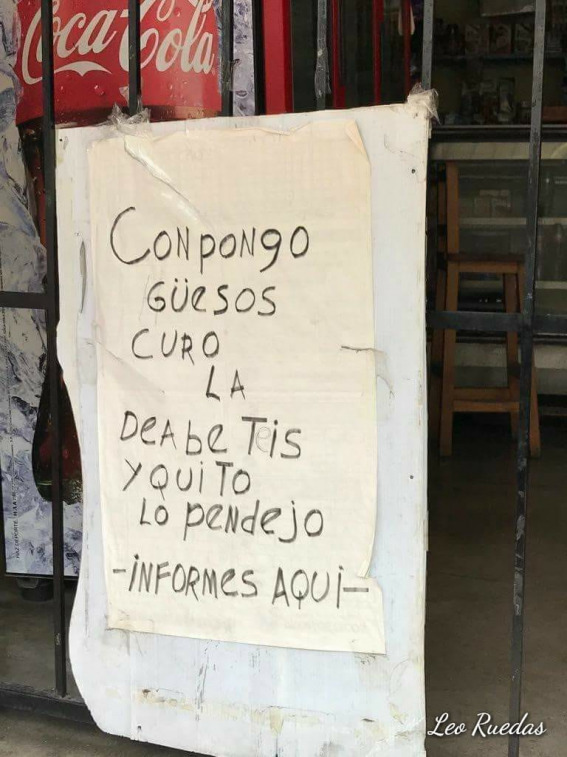 Coca-Cola
CONPONGO
GÜESOS
CURO
LA
DEABETEIS
Y QUITO
LO PENDEJO
-INFORMES AQUI-
Leo Ruedas